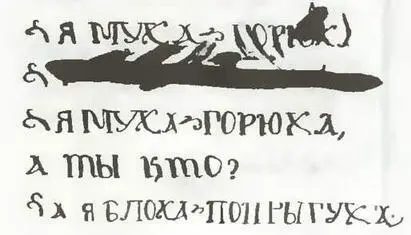 Я МУХА-ГОРЮХ
Я МУХА-ГОРЮХА,
А ТЫ КТО?
А Я БЛОХА-ПОПРЫГУХА.